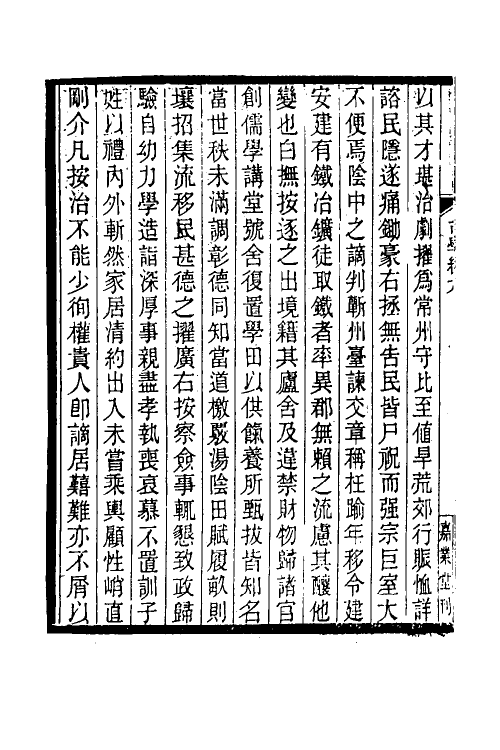 以其才堪治劇擢爲常州守比至値旱荒郊行賑恤詳
諮民隱遂痛鋤豪右拯無吿民皆尸祝而强宗巨室大
不便焉陰中之謫判蘄州臺諫交章稱枉踰年移令建
安建有鐵冶鑛徒取鐵者率異郡無賴之流慮其釀他
變也白撫按逐之出境籍其廬舍及違禁財物歸諸官
創儒學講堂號舍復置學田以供餼養所甄拔皆知名
當世秩未滿調彰德同知當道檄覈湯陰田賦履畝則
壤招集流移民甚德之擢廣右按察僉事輒懇致政歸
驗自幼力學造詣深厚事親盡孝執喪哀慕不置訓子
姓以禮內外斬然家居清約出入未嘗乘輿顧性峭直
剛介凡按治不能少徇權貴人卽謫居囏難亦不屑以
嘉業堂刊